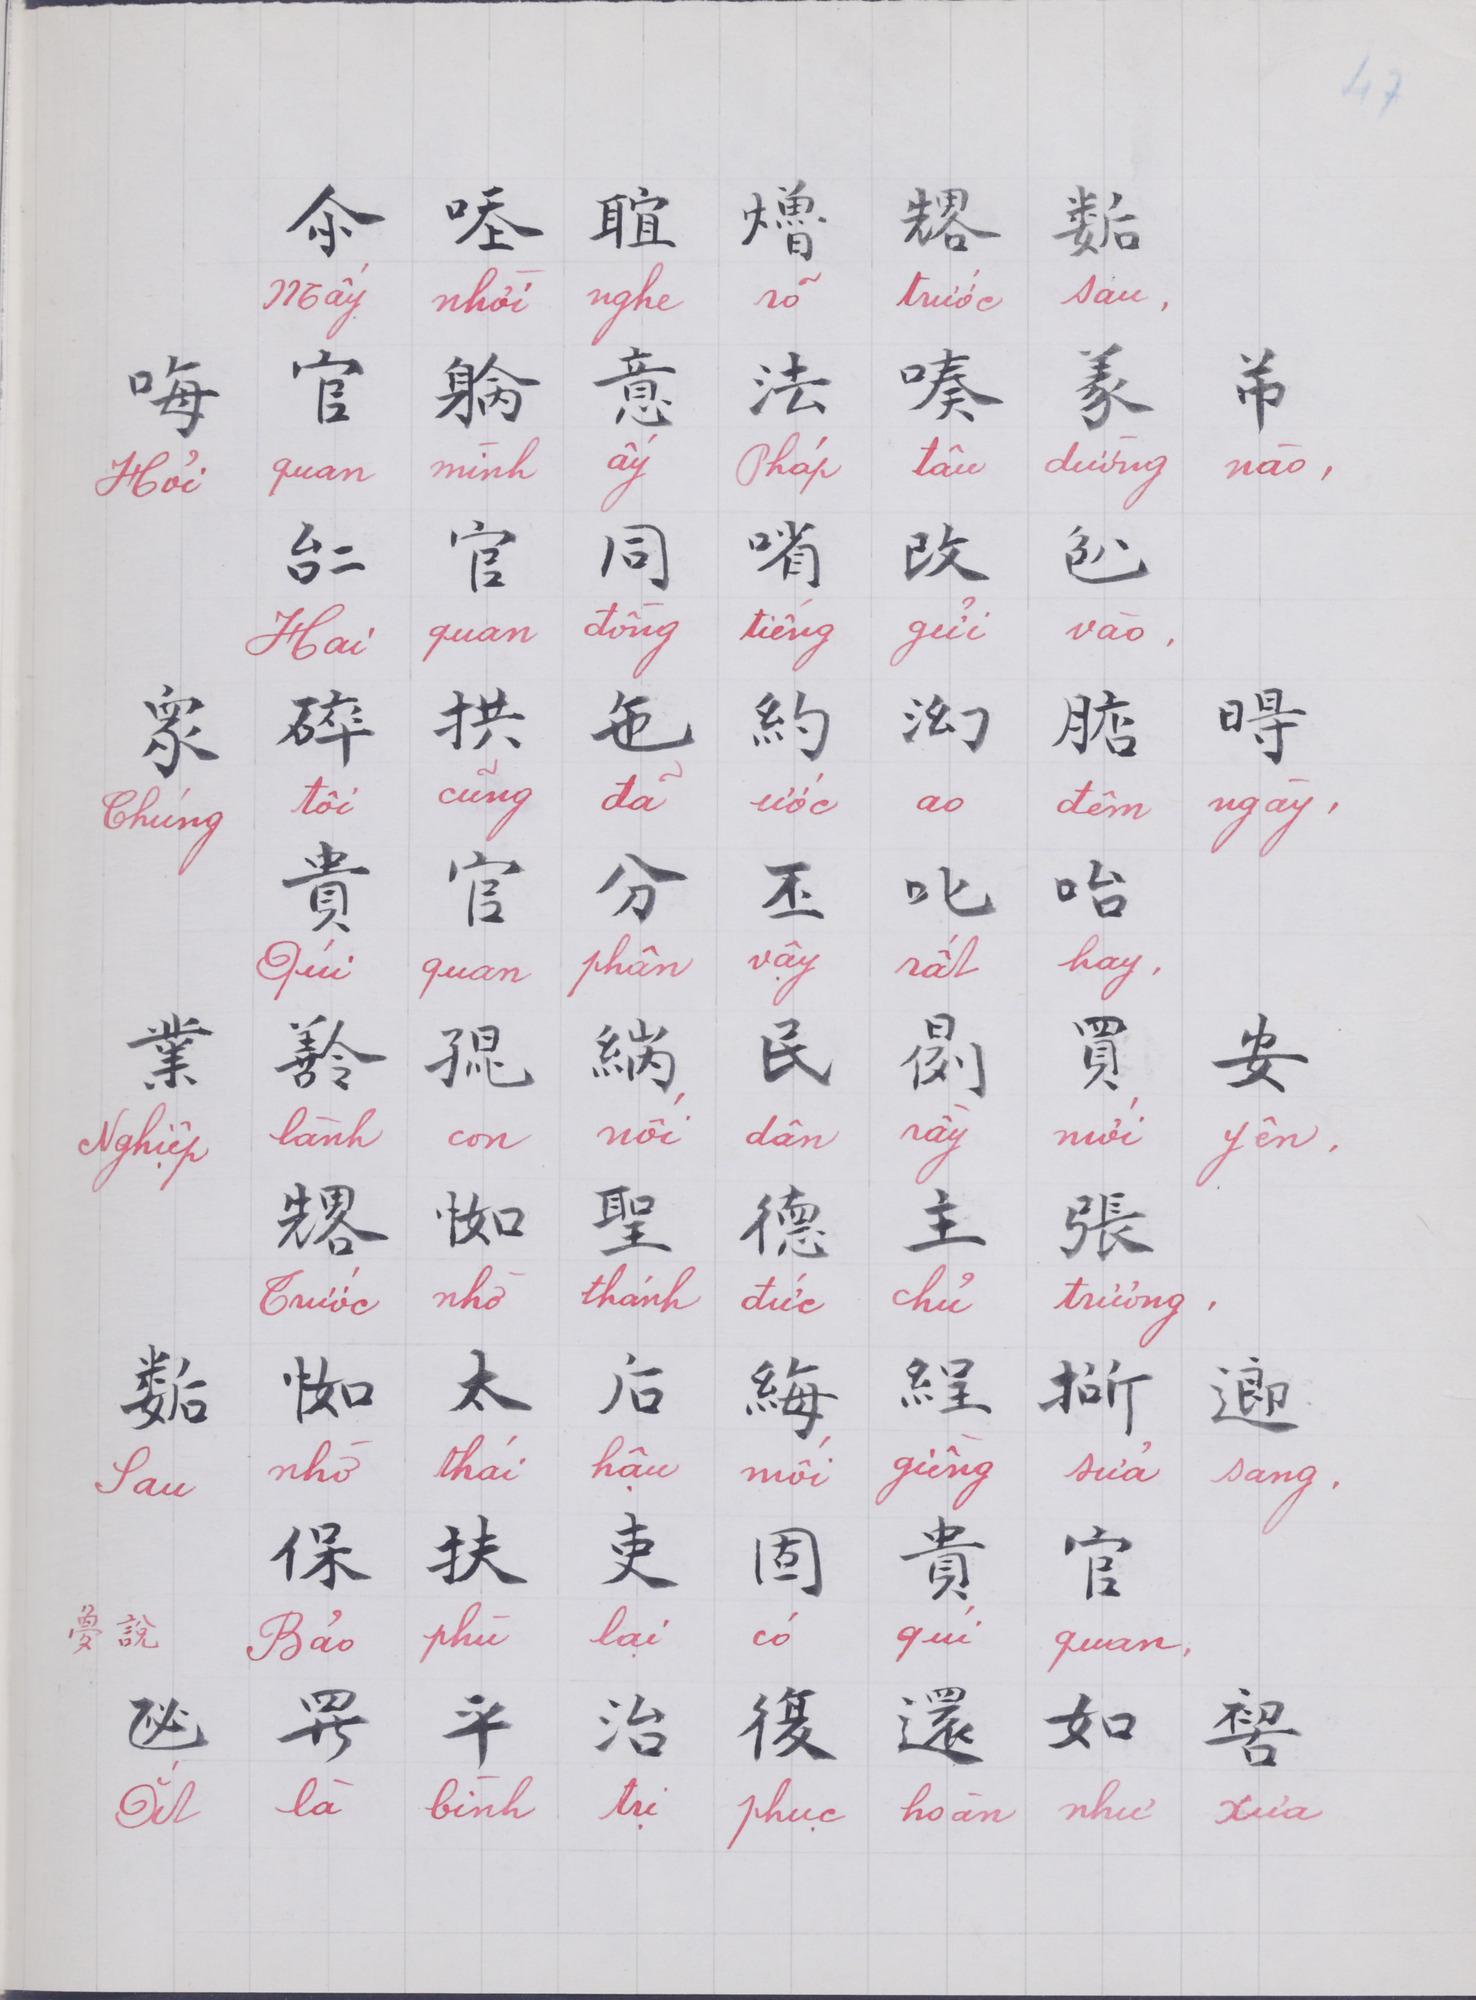 47
尒 𠰃 聒 𤏣 𠓀 𢖖
Mấy nhời nghe rõ trước sau,
𠳨 官 𨉓 意 法 嗪 羕 芇
Hỏi quan mình ấy Pháp tâu dường nào,
𠄩 官 同 㗂 改 𠓨
Hai quan đồng tiếng gửi vào,
眾 碎 拱 㐌 約 泑 𣎀 𣈜
Chúng tôi cũng đã ước ao đêm ngày,
貴 官 分 丕 叱 咍
Quí quan phân vậy rất hay,
業 𫅜 𡥵 𦀼 民 𣋇 買 安
Nghiệp lành con nối dân rầy mới yên,
𠓀 𢘾 聖 德 主 張
Trước nhờ thánh đức chủ trương,
𢖖 𢘾 太 后 䋦 經 𢯢 𨖅
Sau nhờ thái hậu mối giềng sửa sang,
保 扶 吏 固 貴 官
Bảo phù lại có quí quan,
𠃅 𱺵 平 治 復 還 如 𠸗
Ắt là bình trị phục hoàn như xưa